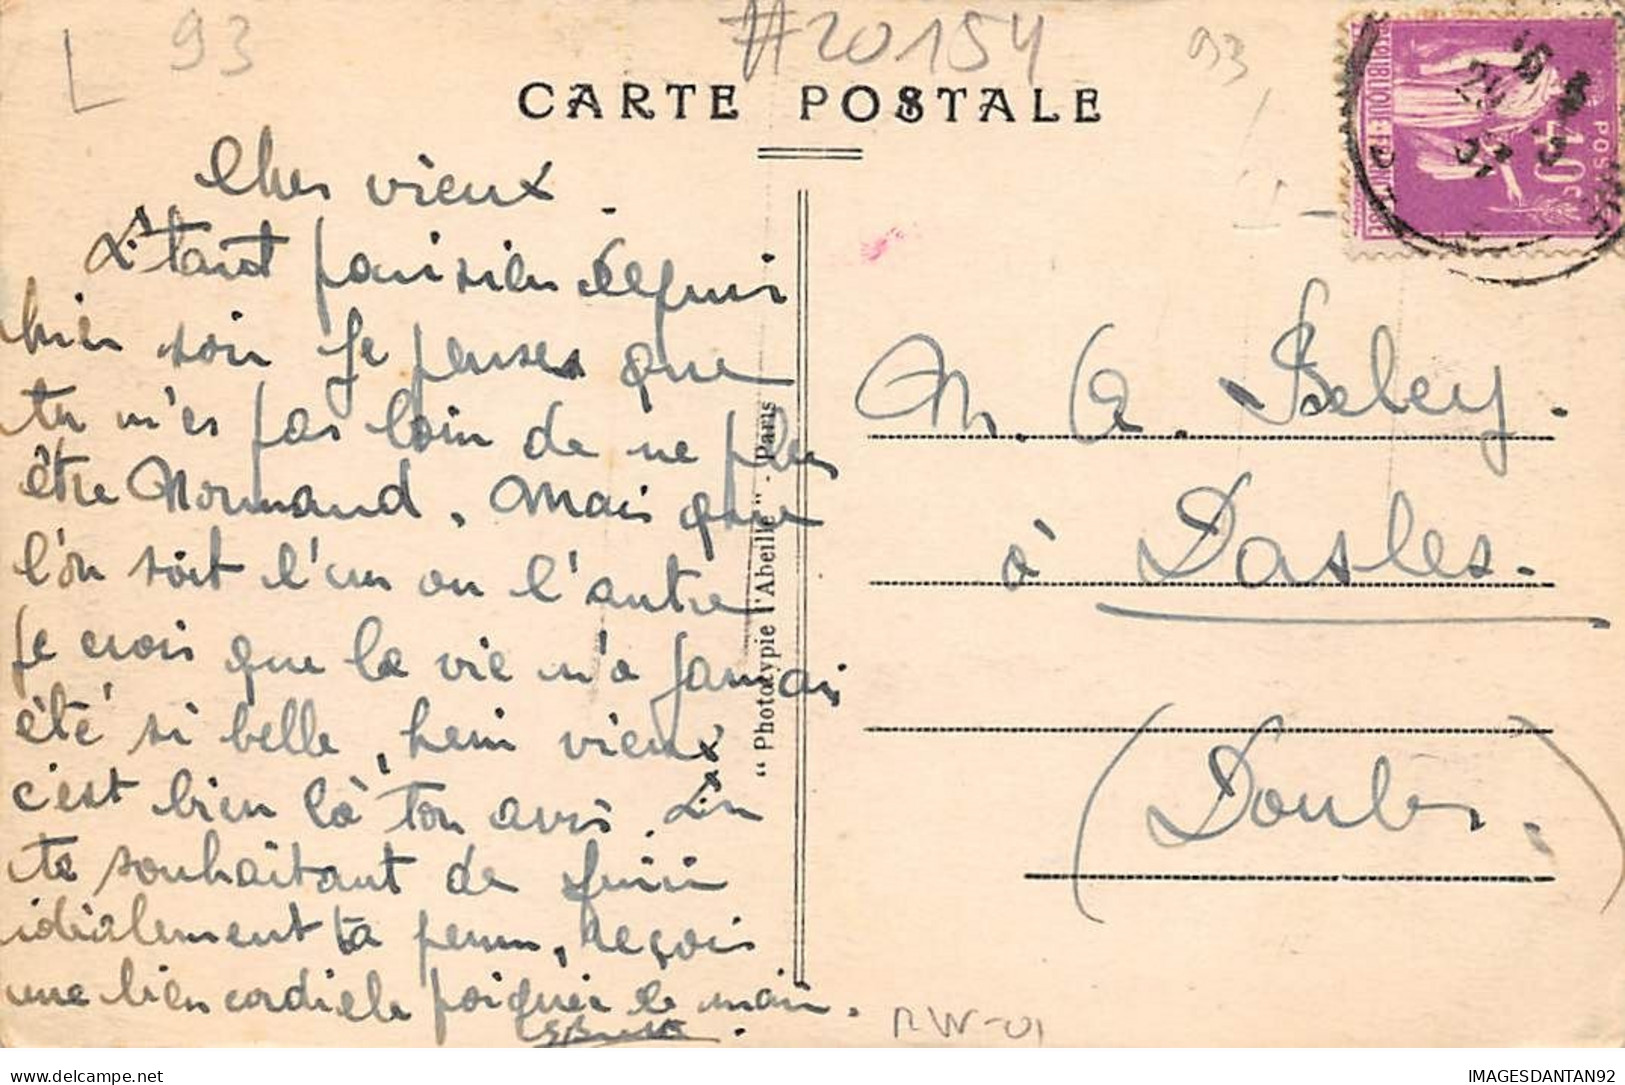 L 93 #20154 93
CARTE POSTALE
REPUBLIQUE FRANCAISE
POSTES
40c
29
37
Cher vieux.
Étant parisien depuis
hier soir je penses que
tu n'es pas loin de ne plus
être Normand. Mais que
l'on soit l'un ou l'autre
je crois que la vie n'a jamais
été si belle, hein vieux
c'est bien là ton avis. En
te souhaitant de finir
idéalement ta perm, reçois
une bien cordiale poignée de main.
"Phototypie l'Abeille" - Paris
M. A. Beley.
à Dasles.
(Doubs.)
RW-01
IMAGESDANTAN92